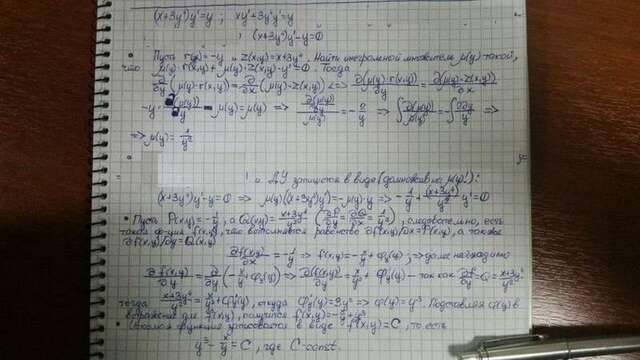 (x+3y⁴)y'=y ; xy'+3y⁴y'=y
(x+3y⁴)y'-y=0
• Пусть r(x,y)=-y и z(x,y)=x+3y⁴. Найти интегральной множитель μ(y) такой,
что μ(y)·r(x,y)+μ(y)·z(x,y)·y'=0. Тогда
∂/∂y (μ(y)·r(x,y))=∂/∂x (μ(y)·z(x,y)) <=> ∂(μ(y)·r(x,y))/∂y = ∂(μ(y)·z(x,y))/∂x
-y·∂(μ(y))/∂y - μ(y)=μ(y) => ∂(μ(y))/∂y / μ(y) = -2/y => ∫ ∂(μ(y))/μ(y) = ∫ =>
=> μ(y)= 1/y²
ДУ запишется в виде (домножив на μ(y)!):
(x+3y⁴)y'-y=0 => μ(y)((x+3y⁴)y')=μ(y)·y => -1/y + (x+3y⁴)/y² · y'=0
• Пусть P(x,y)=-1/y, а Q(x,y)=(x+3y⁴)/y² (∂P/∂y=∂Q/∂x=1/y²), следовательно, есть
такая ф-ция f(x,y), где выполняется равенство ∂f(x,y)/∂x=P(x,y), а также
∂f(x,y)/∂y=Q(x,y)
∂f(x,y)/∂x = -1/y => f(x,y)=-x/y+Ф(y); => далее находите
∂f(x,y)/∂y = ∂/∂y (-x/y+Ф(y)) => ∂f(x,y)/∂y = x/y²+Ф'(y) - так как ∂f/∂y=Q=(x+3y⁴)/y²
тогда (x+3y⁴)/y² = x/y²+Ф'(y), откуда Ф'(y)=3y² => Ф(y)=y³. Подставляя Ф(y) в
выражение для f(x,y), получится f(x,y)=-x/y+y³
функция запишется в виде f(x,y)=C, то есть
y³-x/y=C, где C-const.